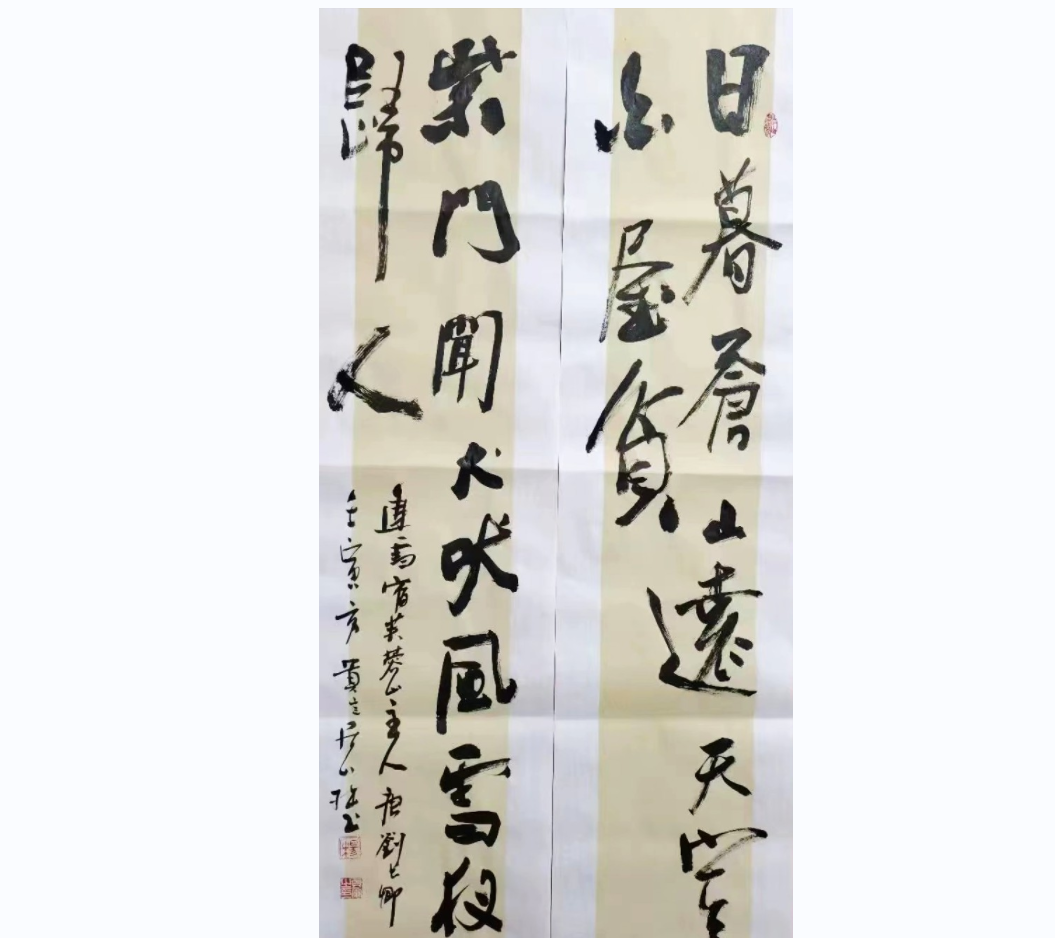 日暮蒼山遠天寒
白屋貧
柴門聞犬吠風雪夜
歸人
逢雪宿芙蓉山主人 唐劉長卿
壬寅 書